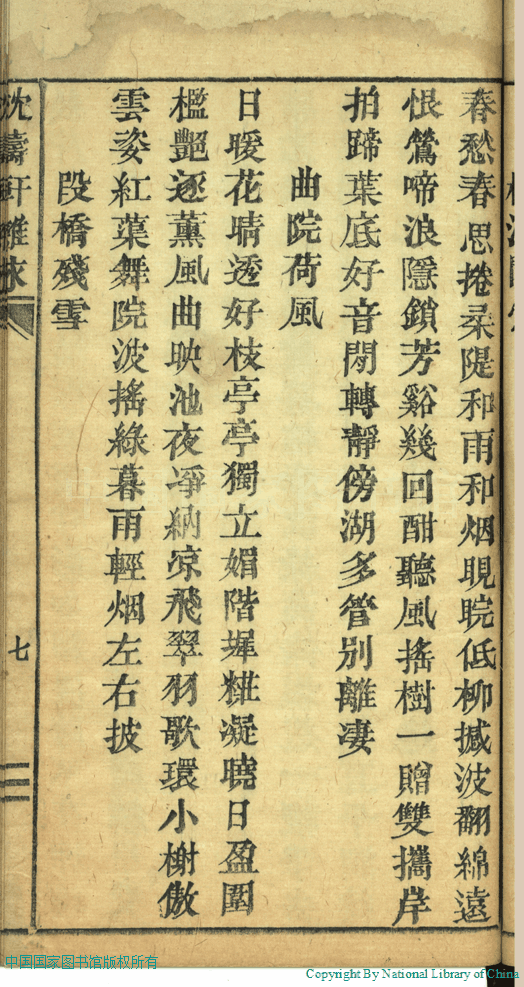 春愁春思捲柔隄和雨和烟晛睆低柳撼波翻綿遠
恨鶯啼浪隱鎖芳谿幾回酣聽風搖樹一贈雙攜岸
拍蹄葉底好音閒轉靜傍湖多管別離凄
曲院荷風
日暖花晴透好枝亭亭獨立媚階墀粧凝曉日盈圍
檻艷逐薰風曲映池夜凈納凉飛翠羽歌環小榭傲
雲姿紅葉舞院波搖綠暮雨輕烟左右披
段橋殘雪
七
中国国家图书馆版权所有
Copyright By National Library of China